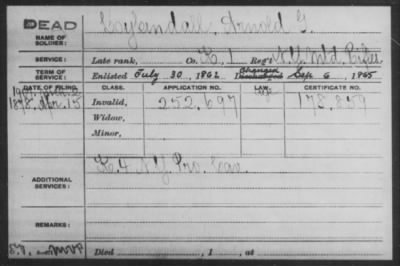 DEAD
NAME OF SOLDIER: Coykendall, Arnold G.
SERVICE: Late rank, Co. K, 1 Reg't N.Y. Mtd. Rifles
TERM OF SERVICE: Enlisted July 30, 1862 Discharged Sep 6, 1865
DATE OF FILING. CLASS. APPLICATION NO. LAW. CERTIFICATE NO.
1878, Apr. 15 Invalid, 252,697 178,859
Widow,
Minor,
ADDITIONAL SERVICES: K. 4 N.Y. Pro. Cav.
REMARKS:
Died , 1 , at